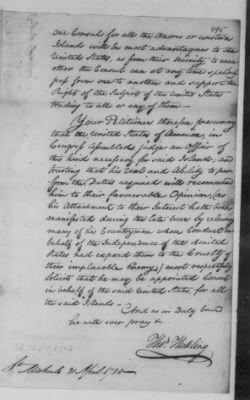 495
One Consul for all the Azores or western
Islands will be most advantageous to the
United States, as from their vicinity to each
other the Consul can at any time speedily
pass from one to another and support the
Rights of the Subjects of the United States
trading to all or any of them —
Your Petitioner therefore presuming
that the United States of America, in
Congress Assembled, judge an Officer of
this kind necessary for said Islands, and
trusting that his Zeal and Ability to per-
form the Duties required will recommend
him to their favourable Opinion, (as
his Attachment to their Interest hath been
manifested during the late war by relieving
many of his Countrymen whose Conduct in
behalf of the Independence of that United
States had exposed them to the Cruelty of
their implacable Enemy,) most respectfully
solicit that he may be appointed Consul
in behalf of the said United States, for all
the said Islands —
And as in Duty bound
he will ever pray &c.
Thos. Hickling
St. Michaels April